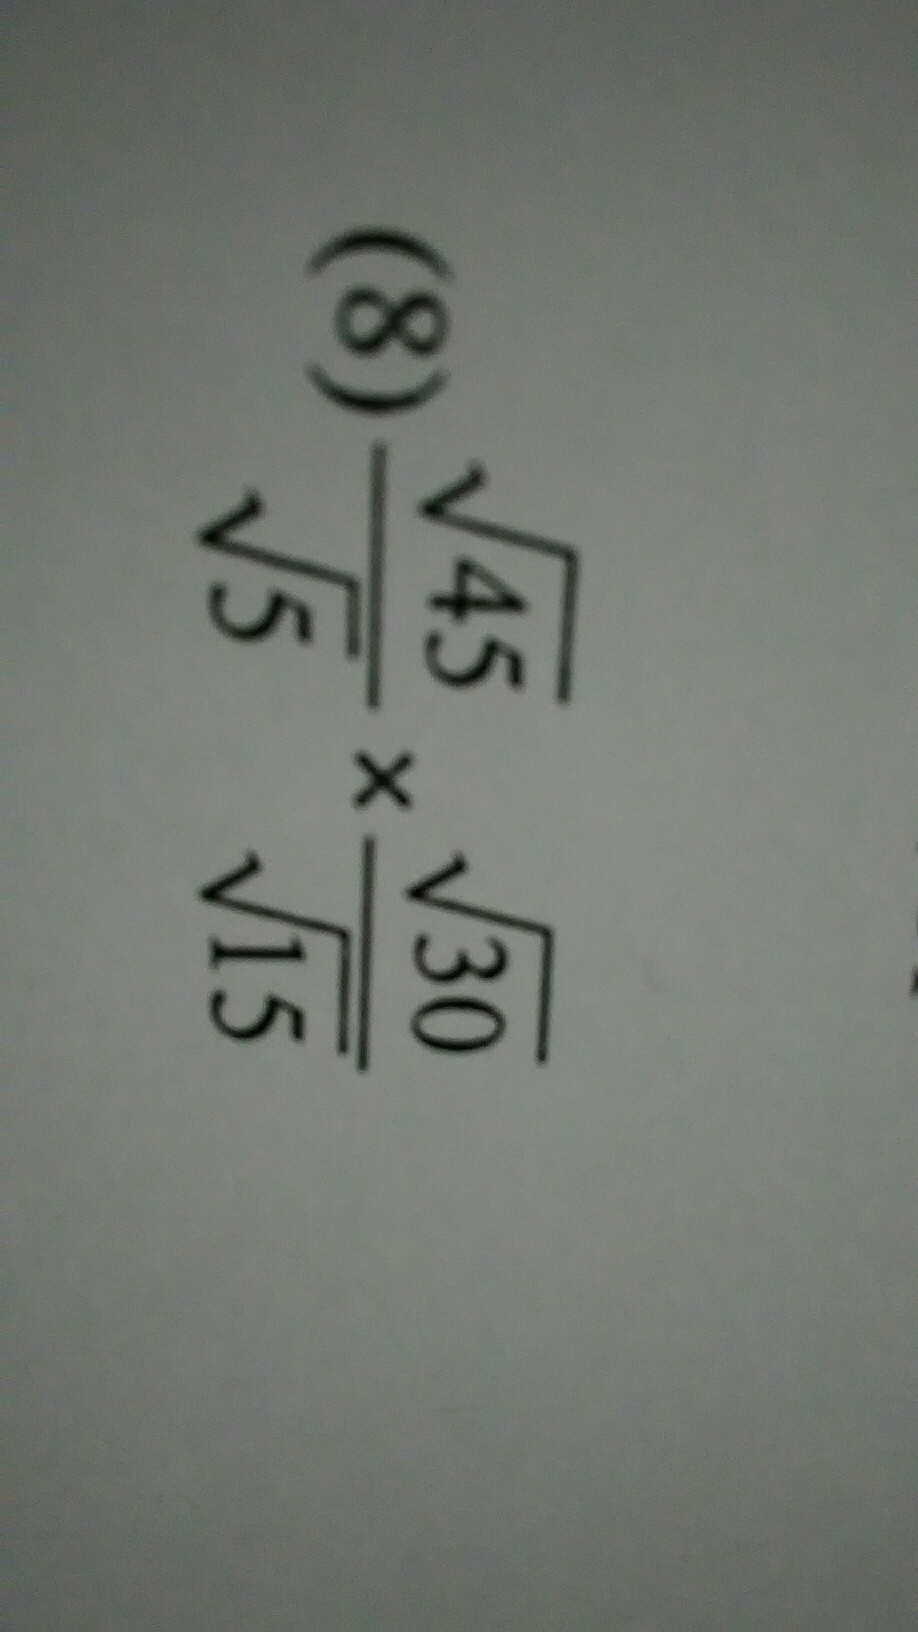 (8) \frac{\sqrt{45}}{\sqrt{5}} × \frac{\sqrt{30}}{\sqrt{15}}